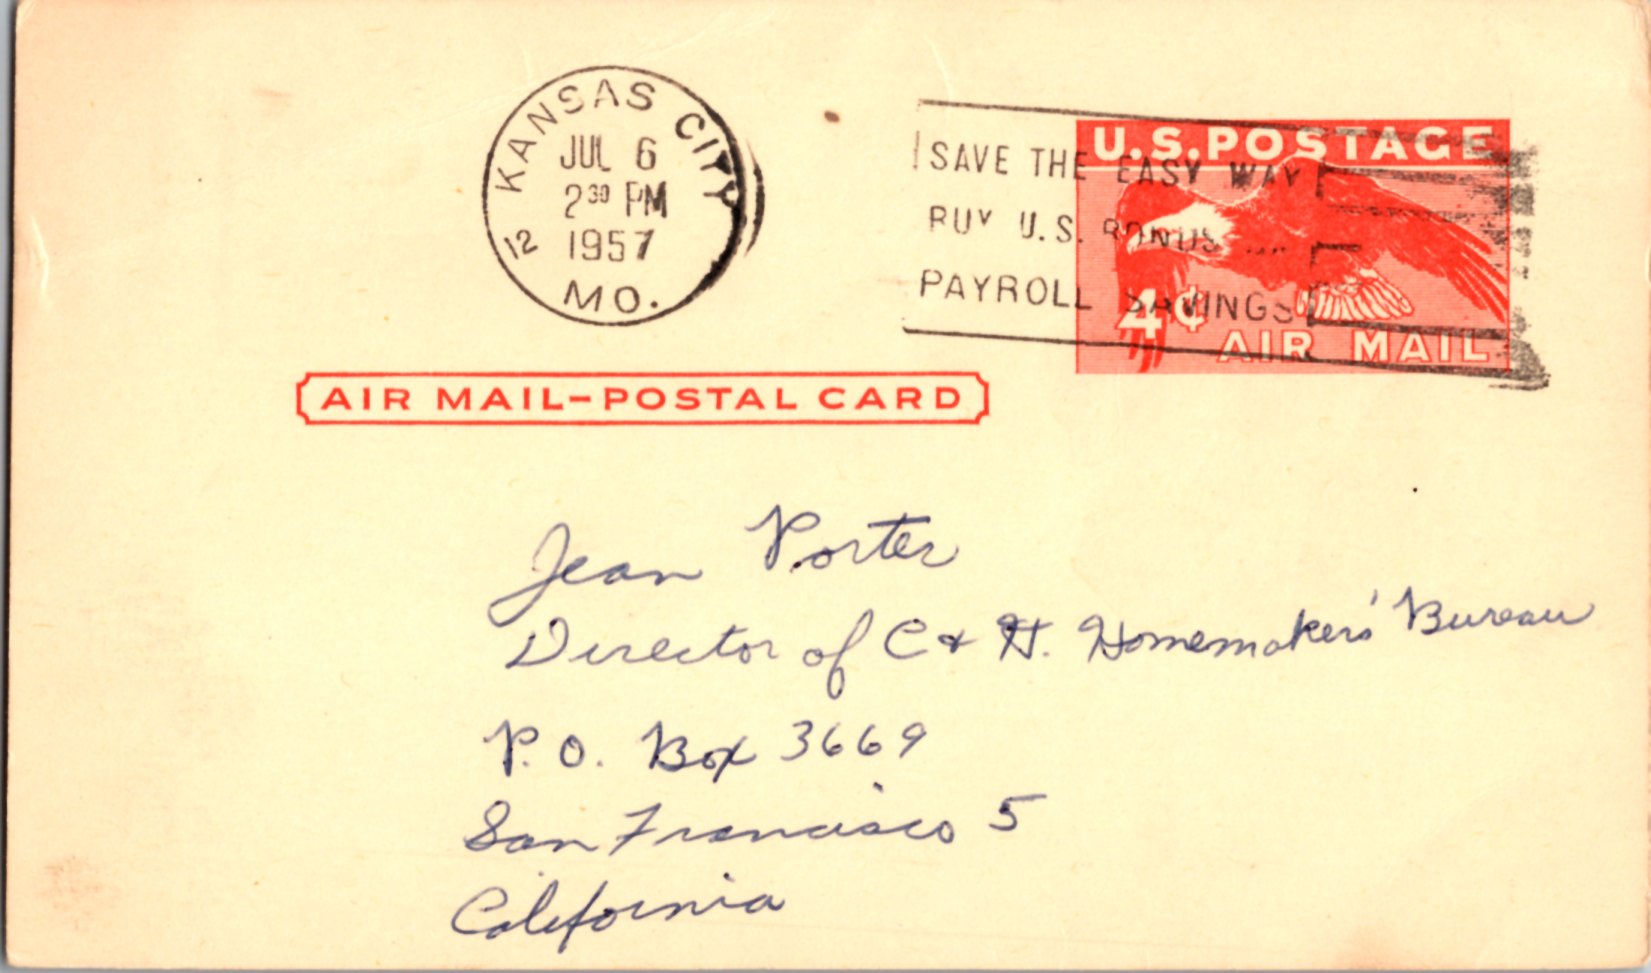 KANSAS CITY
JUL 6
2 30 PM
1957
12
MO.
SAVE THE EASY WAY
BUY U.S. BONDS
PAYROLL SAVINGS
U.S. POSTAGE
4¢
AIR MAIL
AIR MAIL-POSTAL CARD
Jean Porter
Director of C & H. Homemakers' Bureau
P.O. Box 3669
San Francisco 5
California